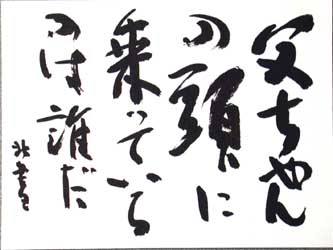 父ちゃん
の頭に
乗っている
のは誰だ